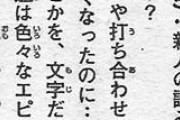 新人の
？
や打ち合わせ
くなったのに…
かを、文字だ
は色々なエピ